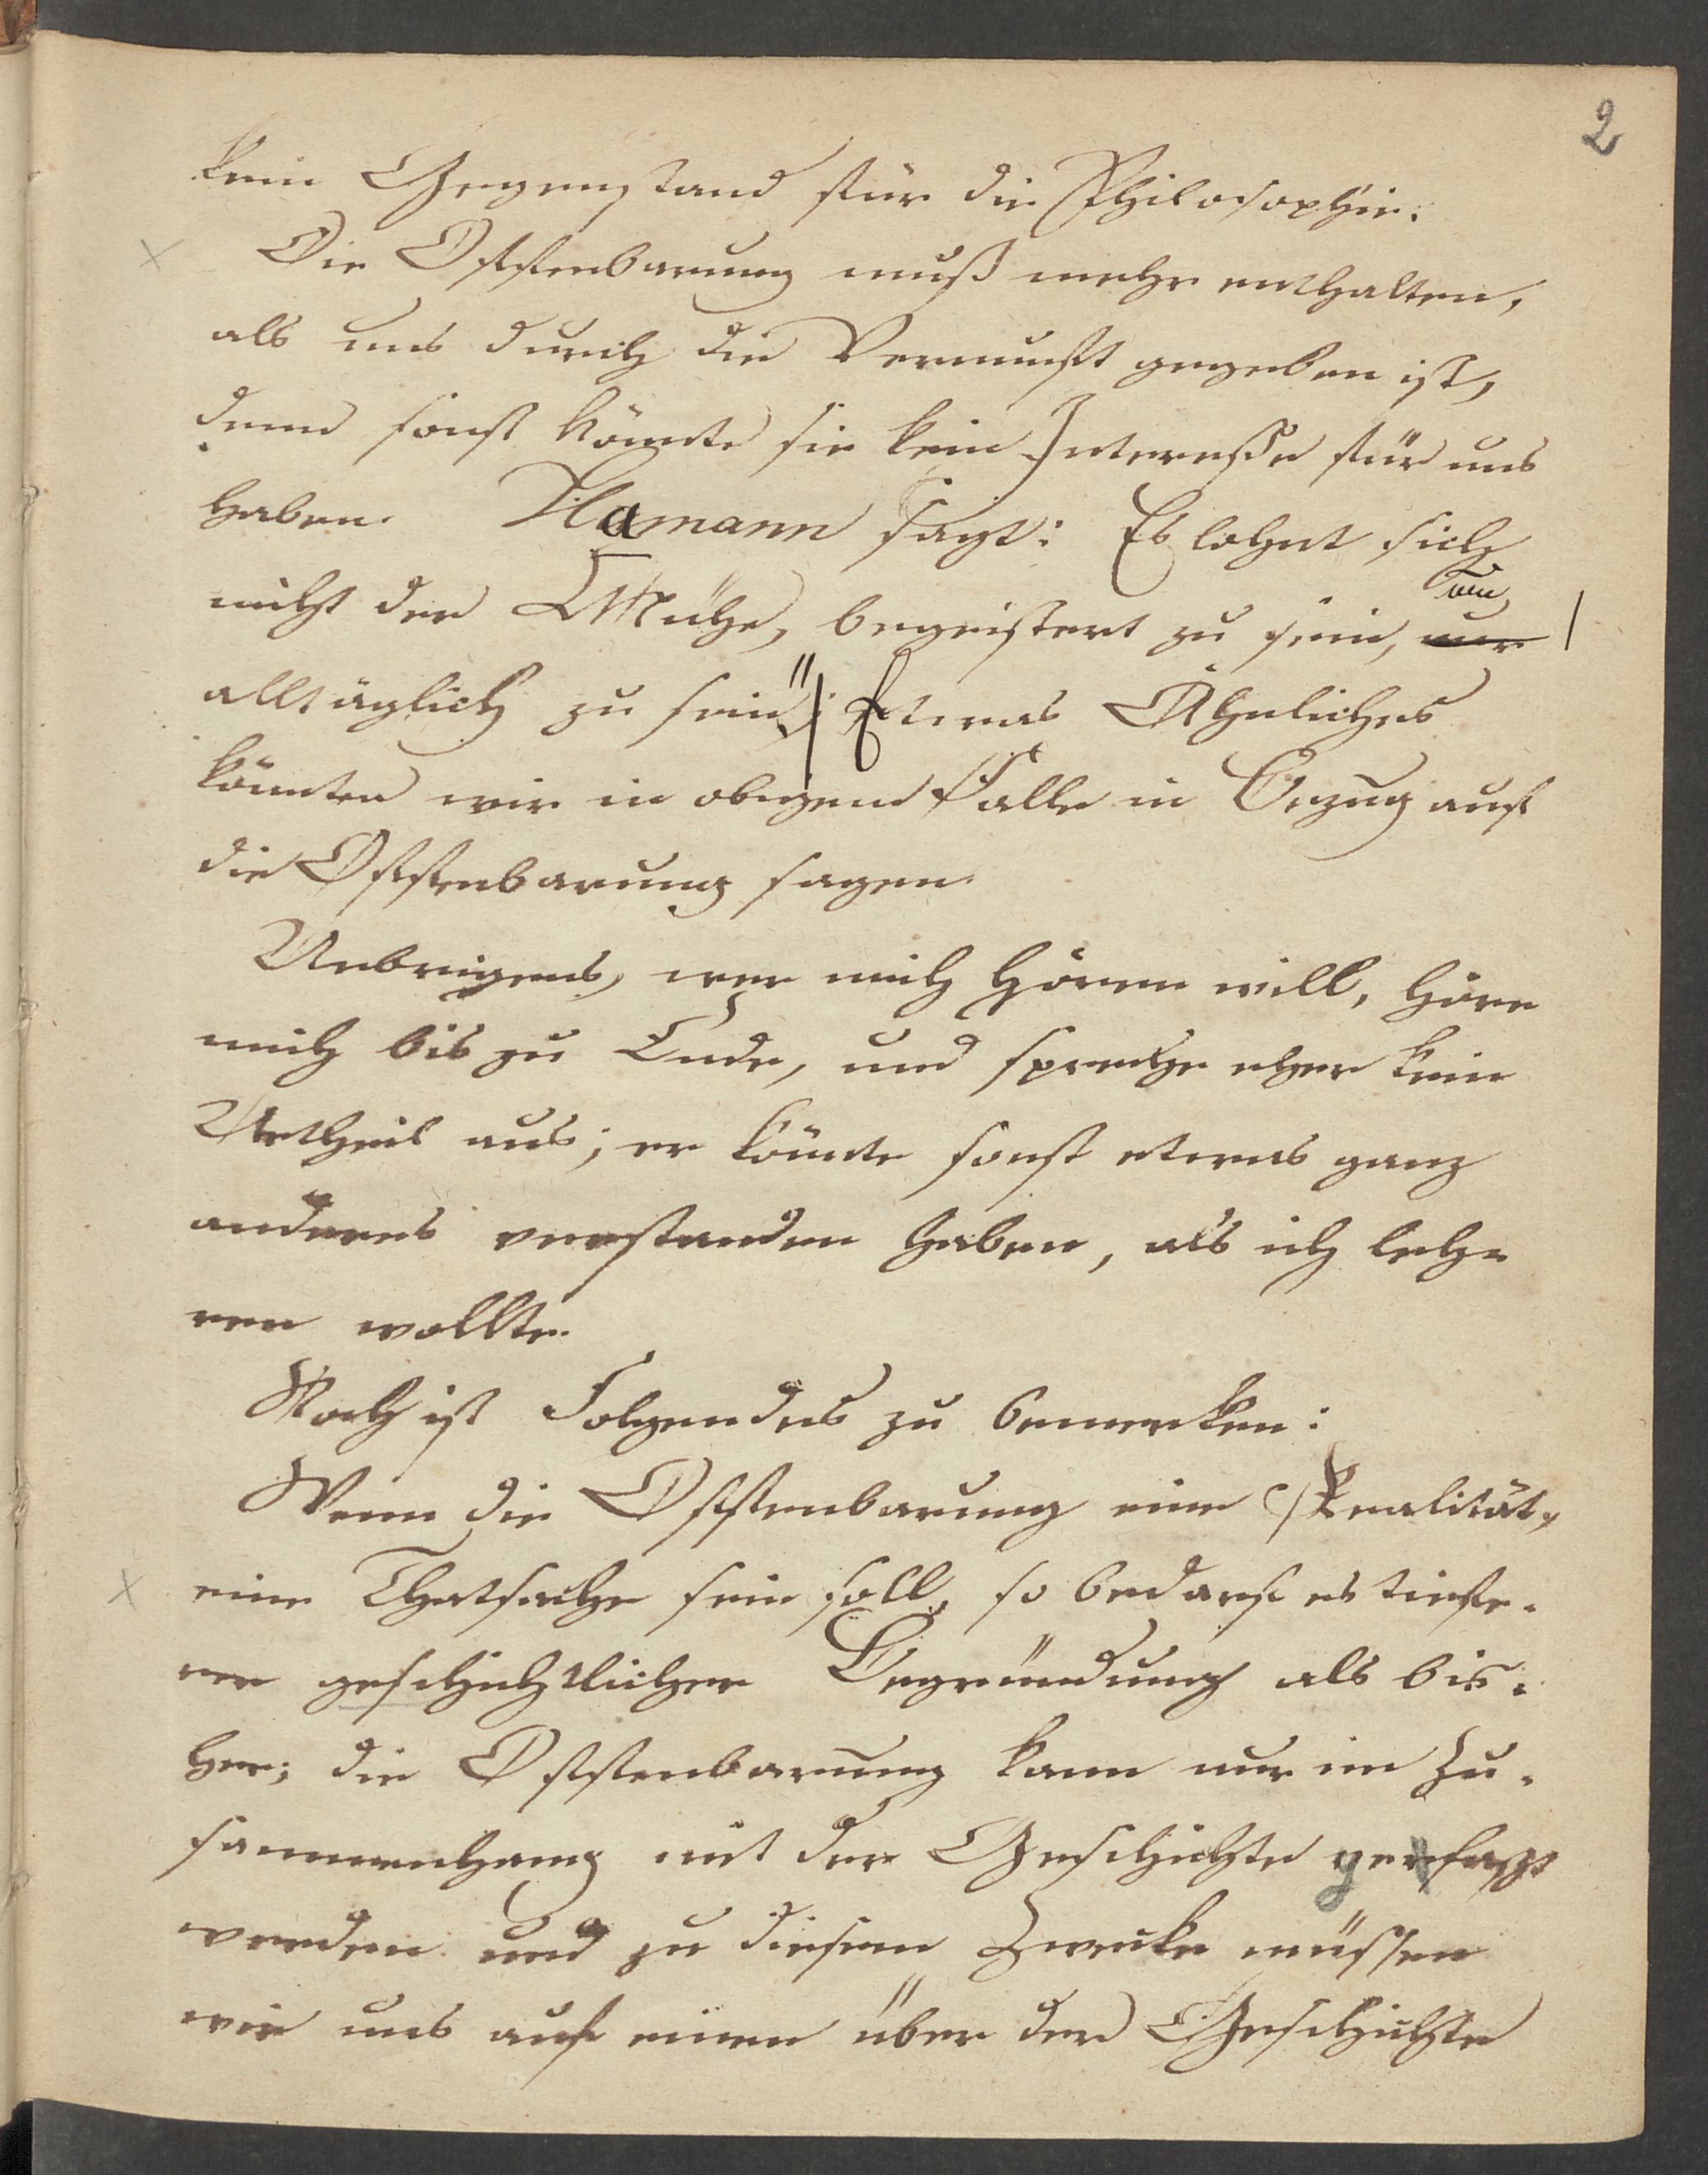 2
kein Gegenstand für die Philosophie.
Die Offenbarung muß mehr enthalten,
als uns durch die Vernunft gegeben ist,
denn sonst könnte sie kein Interesse für uns
haben. Hamann sagt: Es lohnt sich
nicht der Mühe, begeistert zu sein, um
alltäglich zu sein." Etwas Ähnliches
könnten wir in obigem Falle in Bezug auf
die Offenbarung sagen.
Uebrigens, wer mich hören will, höre
mich bis zu Ende, und spreche eher kein
Urtheil aus; er könnte sonst etwas ganz
anderes verstanden haben, als ich leh-
ren wollte.
Noch ist Folgendes zu bemerken:
Wenn die Offenbarung eine Realität,
eine Thatsache sein soll, so bedarf es tiefe-
rer geschichtlicher Begründung als bis-
her; die Offenbarung kann nur im Zu-
sammenhang mit der Geschichte gefaßt
werden und zu diesem Zwecke müssen
wir uns auf einen über der Geschichte